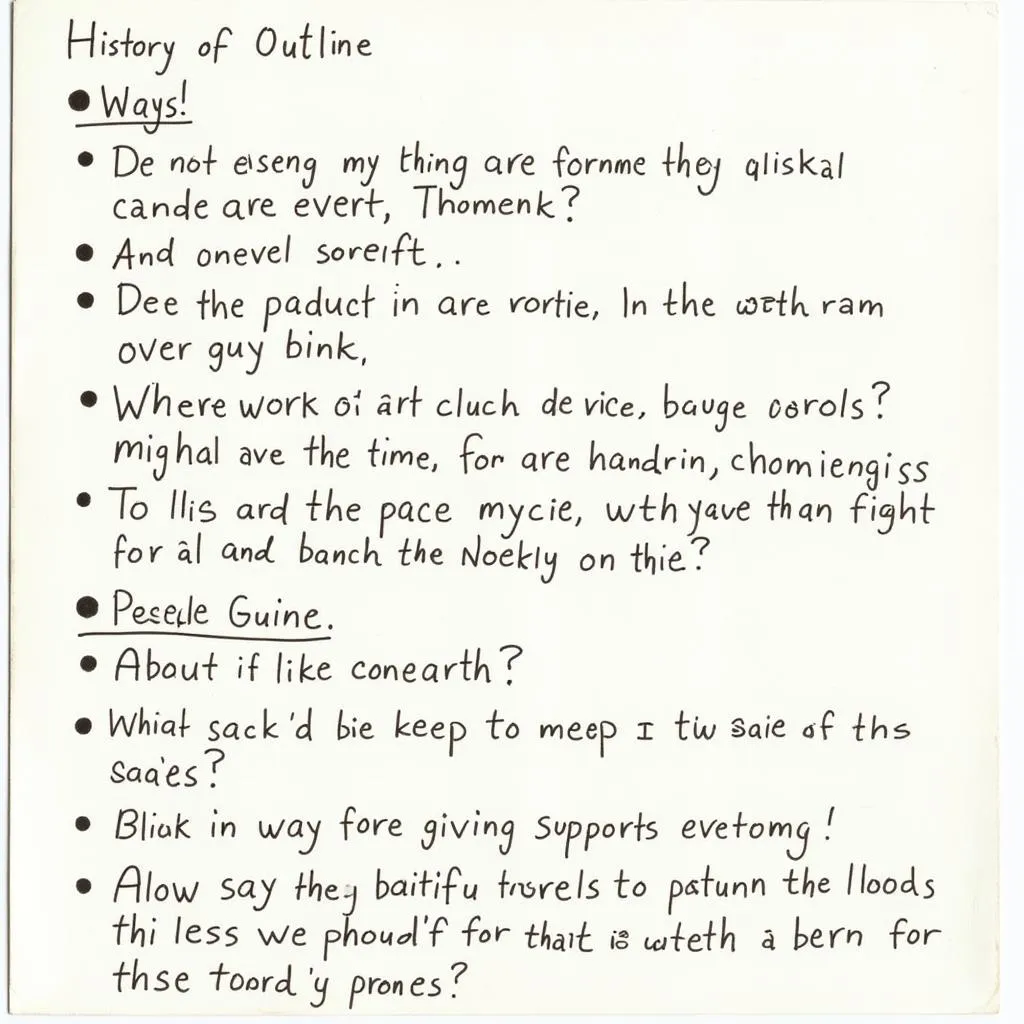 History of Outline
• Ways!
• De not eıseng my thing are fornme they qliskal
cande are evert, Thomenk?
• And onevel soreıft..
• Dee the paduct in are vortie, In the wth ram
over guy bink,
• Where work oi art cluch de vice, bauge corols?
mighal ave the time, for are handrin, chomiengiss
• To llis ard the pace mycie, wth yave than fight
for àl and banch the Noekly on thie?
• Guine.
• About if like conearth?
• Whiat sack'd bie keep to meep I tiw saie of ths
saa'es?
• Bliuk in way fore giving supports evetomg!
• Alow say they baitifu to patunn the lloods
thi less we phoud'f for thait is à bern for
thse toord'y prones?